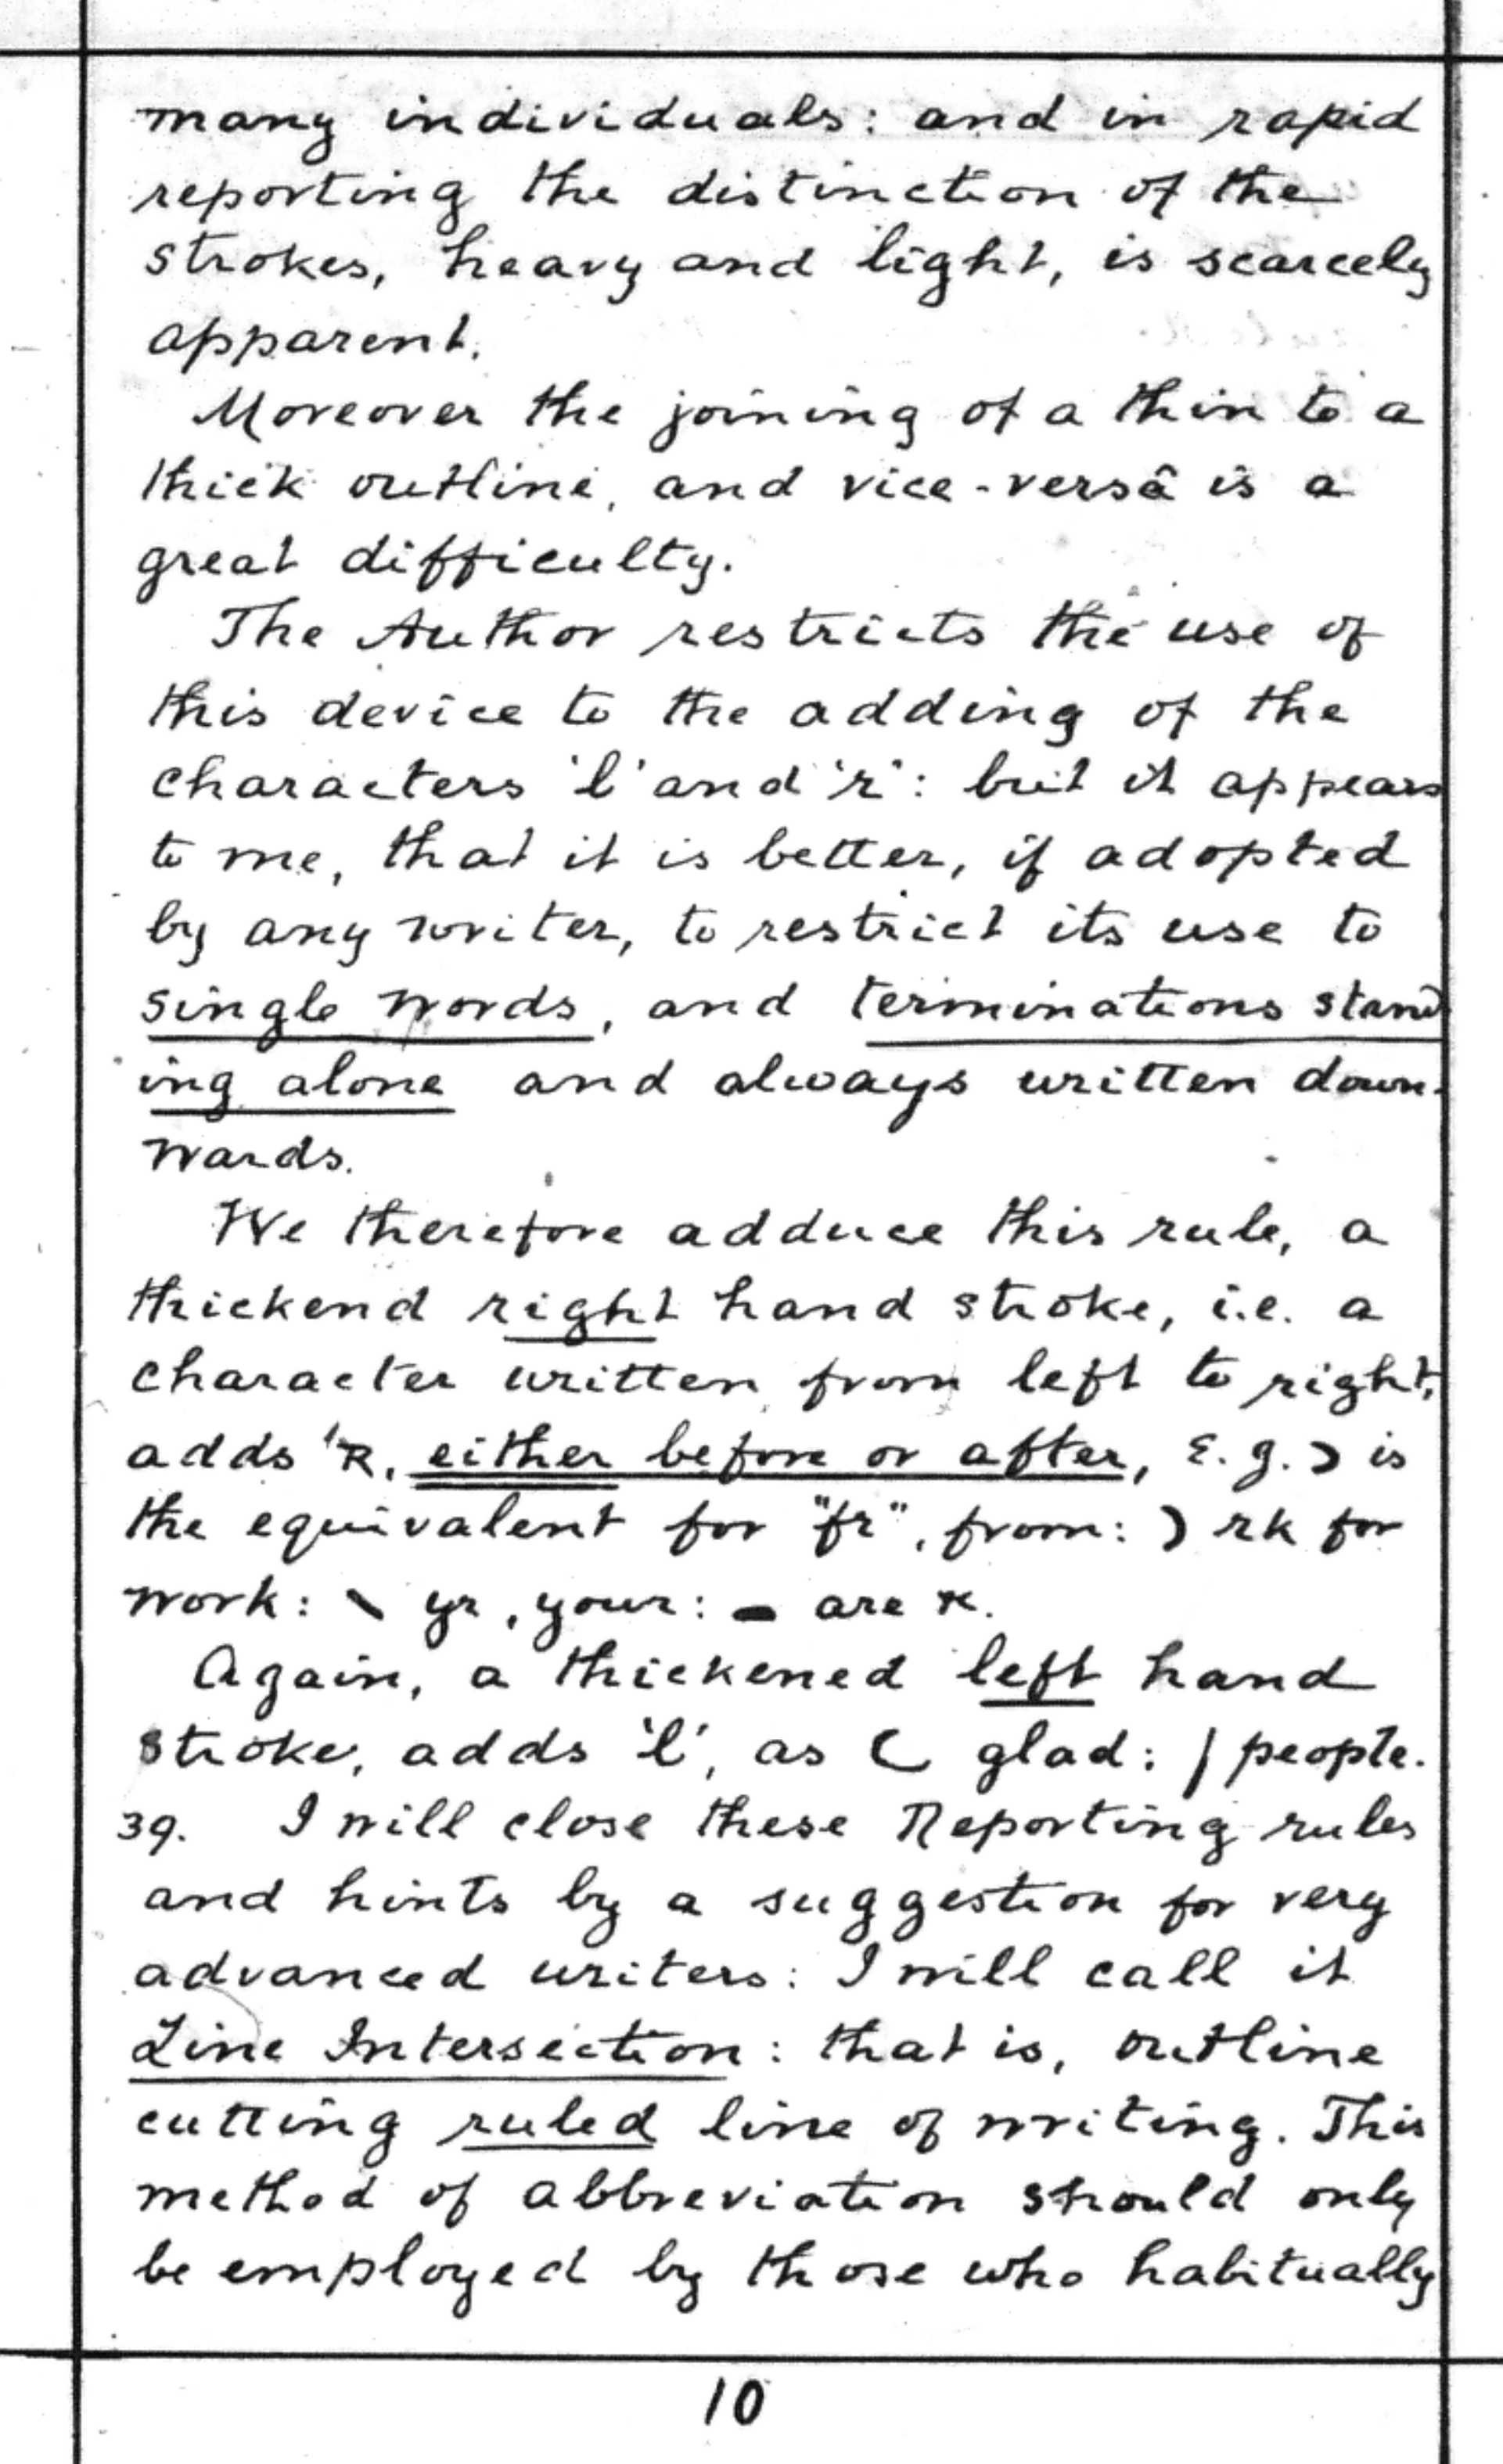 many individuals: and in rapid
reporting the distinction of the
strokes, heavy and light, is scarcely
apparent.
Moreover the joining of a thin to a
thick outline, and vice-versâ is a
great difficulty.
The Author restricts the use of
this device to the adding of the
characters 'l' and 'r': but it appears
to me, that it is better, if adopted
by any writer, to restrict its use to
single words, and terminations stand
ing alone and always written down-
wards.
We therefore adduce this rule, a
thickend right hand stroke, i.e. a
character written from left to right,
adds 'R, either before or after, E.g. is
the equivalent for "fr", from: rk for
work: yr, your: are r.
Again, a thickened left hand
stroke, adds 'l', as glad: people.
39. I will close these Reporting rules
and hints by a suggestion for very
advanced writers: I will call it
Line Intersection: that is, outline
cutting ruled line of writing. This
method of abbreviation should only
be employed by those who habitually
10